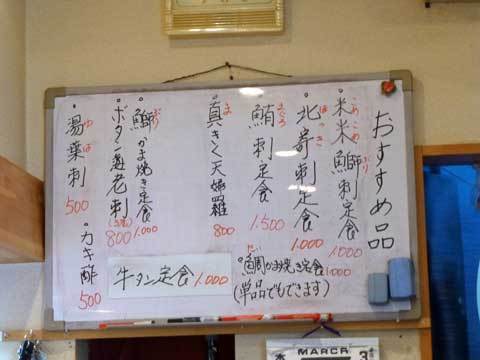 おすすめ品
こめこめ ぶり
・米米鰤刺定食 1.000
ほっき
・北寄刺定食 1.000
まぐろ
・鮪刺定食 1.500
ま
・真きく天婦羅 800
ぶり
・鰤かま焼き定食 1.000
・ボタン海老刺 800
ゆば
・湯葉刺 500
・カキ酢 500
牛タン定食 1.000
・鯛かま焼き定食 1.000
(単品でもできます)
MARCH
3